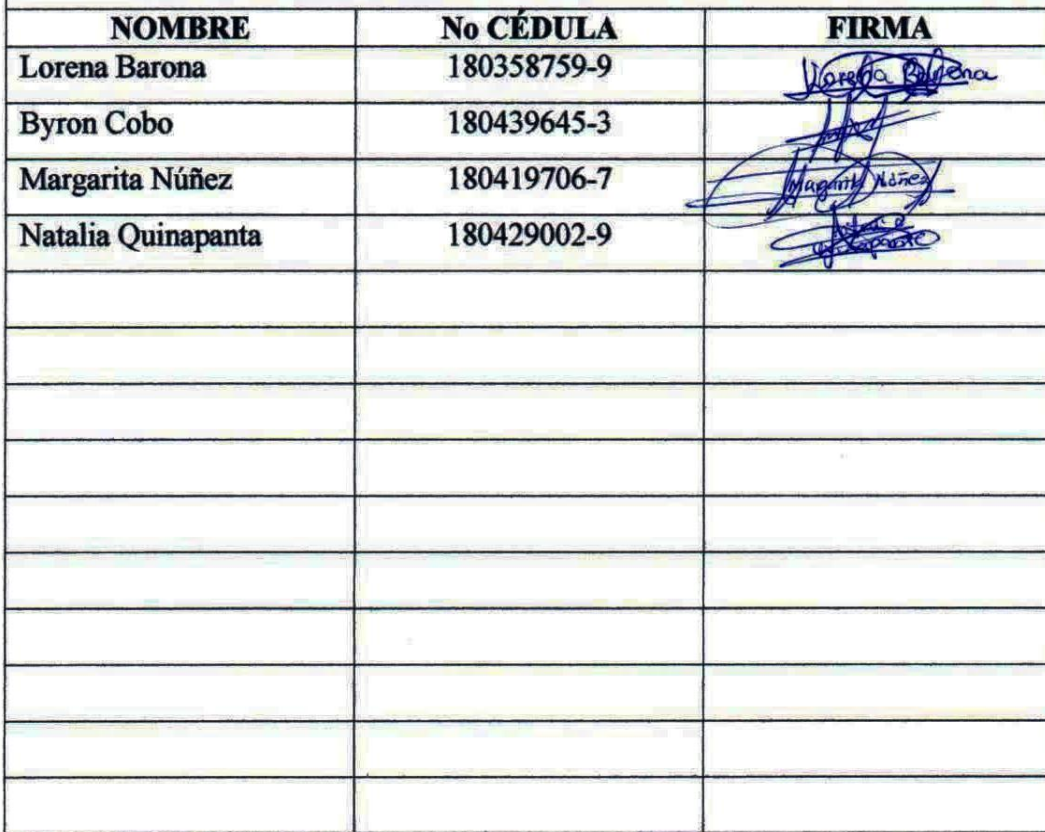 NOMBRE No CÉDULA FIRMA
Lorena Barona 180358759-9 Lorena Barona
Byron Cobo 180439645-3
Margarita Núñez 180419706-7 Margarita Núñez
Natalia Quinapanta 180429002-9